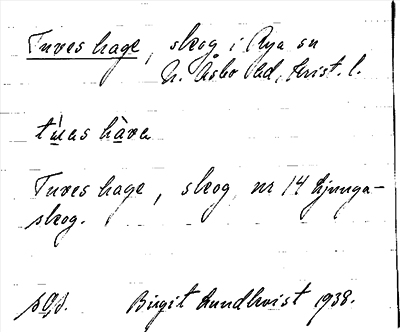 Tuves hage, skog i Rya sn
N. Åsbo hd, Krist. l.
tùas hàva
Tuves hage, skog, nr 14 Ljunga-
skog.
pgs. Birgit Lundkvist 1938.